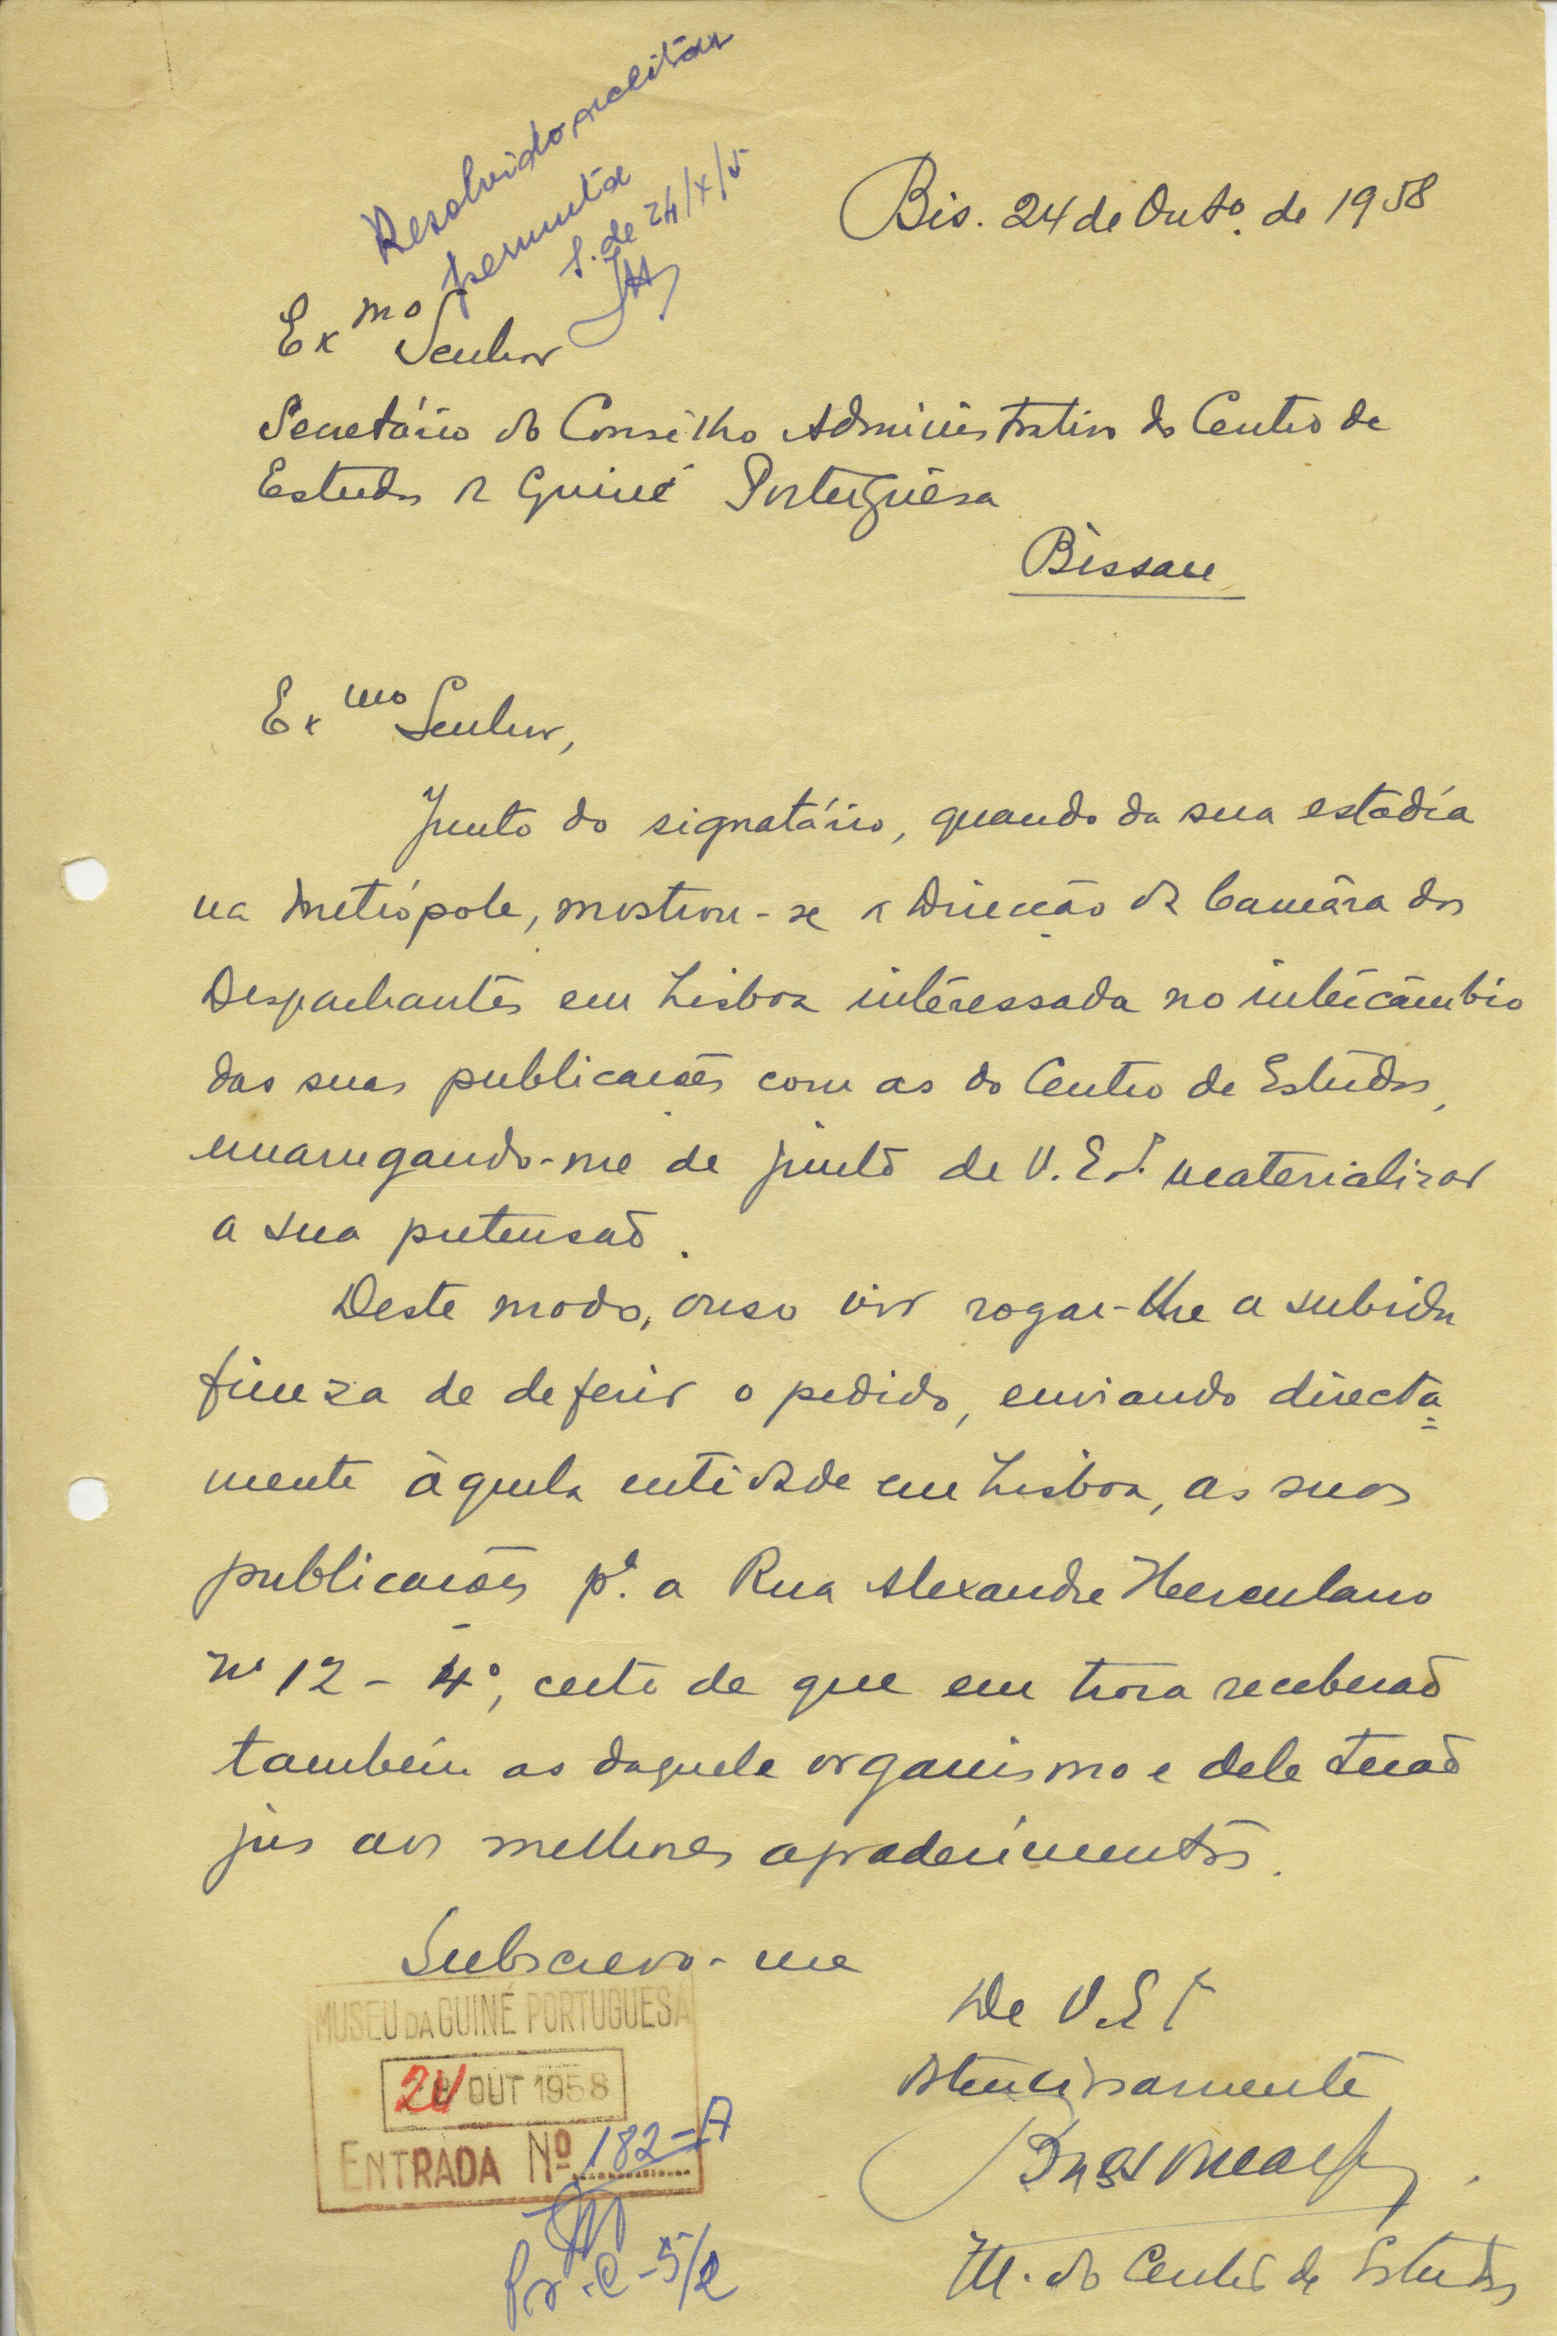 Resolvido aceitar
permuta
S. de 24/X/5
Bis. 24 de Outº. de 1958
Exmo Senhor
Secretário do Conselho Administrativo do Centro de
Estudos da Guiné Portuguêsa
Bissau
Exmo Senhor,
Junto do signatário, quando da sua estadia
na Metrópole, mostrou-se a Direcção da Camâra dos
Despachantes em Lisboa interessada no intercâmbio
das suas publicações com as do Centro de Estudos,
encarregando-me de junto de V. Exª. materializar
a sua pretensão.
Deste modo, ouso vir rogar-lhe a subida
fineza de deferir o pedido, enviando directa=
mente àquela entidade em Lisboa, as suas
publicações pª. a Rua Alexandre Herculano
nº 12 - 4º, certo de que em troca receberão
também as daquele organismo e dele terão
jus aos melhores agradecimentos.
Subscrevo-me
De V. Exª
Atenciosamente
M. do Centro de Estudos
MUSEU DA GUINÉ PORTUGUESA
24 OUT 1958
ENTRADA Nº 182-A
Pr. C-5/2